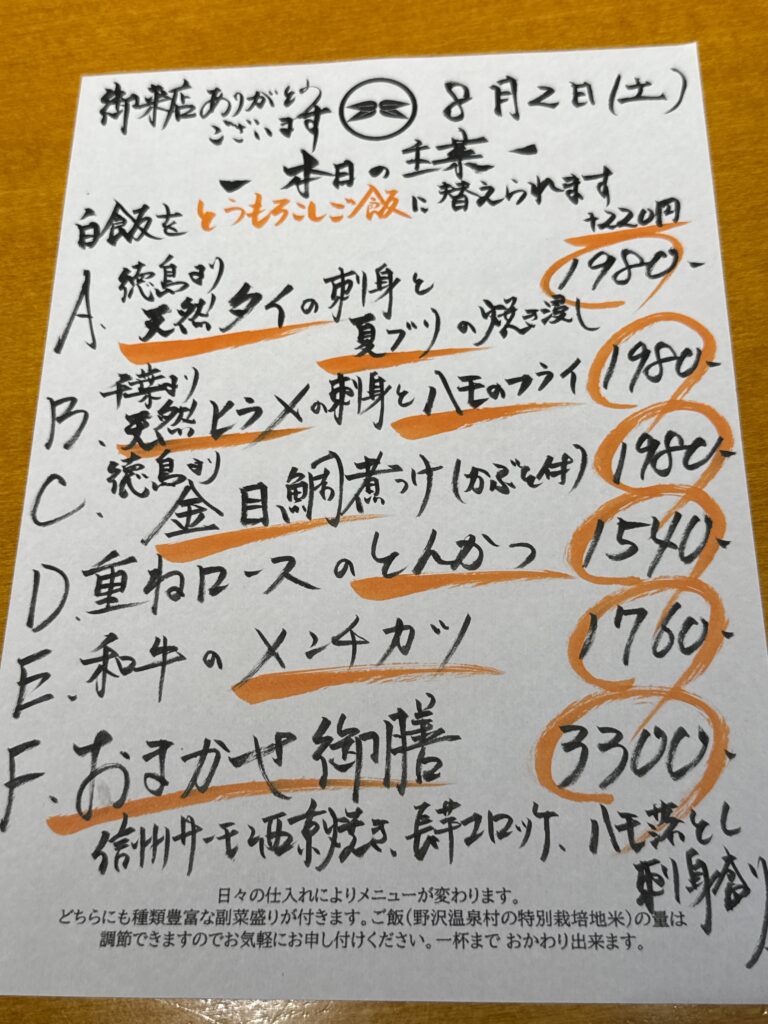 御来店ありがとう
ございます
8月2日(土)
ー本日の主菜ー
白飯をとうもろこしご飯に替えられます
+220円
A. 徳島より
天然タイの刺身と
夏ブリの焼き浸し
1980-
B. 千葉より
天然ヒラメの刺身とハモのフライ
1980-
C. 徳島より
金目鯛煮つけ(かぶと付)
1980-
D. 重ねロースのとんかつ 1540-
E. 和牛のメンチカツ 1760-
F. おまかせ御膳 3300-
信州サーモン西京焼き、長芋コロッケ、ハモ落とし
刺身盛り
日々の仕入れによりメニューが変わります。
どちらにも種類豊富な副菜盛りが付きます。ご飯(野沢温泉村の特別栽培地米)の量は
調節できますのでお気軽にお申し付けください。一杯まで おかわり出来ます。